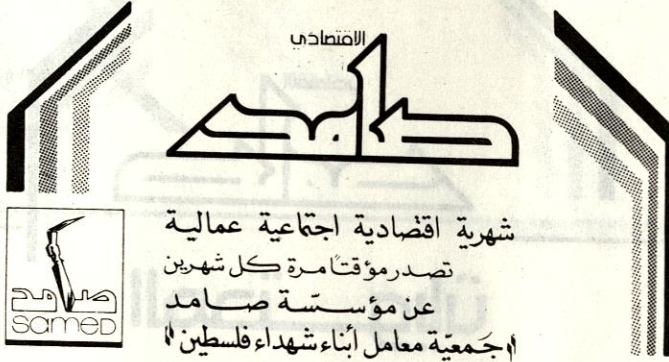 الاقتصادي
صامد
شهرية اقتصادية اجتماعية عمالية
تصدر مؤقتًا مرة كل شهرين
عن مؤسسة صامد
"جمعيّة معامل أبناء شهداء فلسطين"
صامد
SAMED